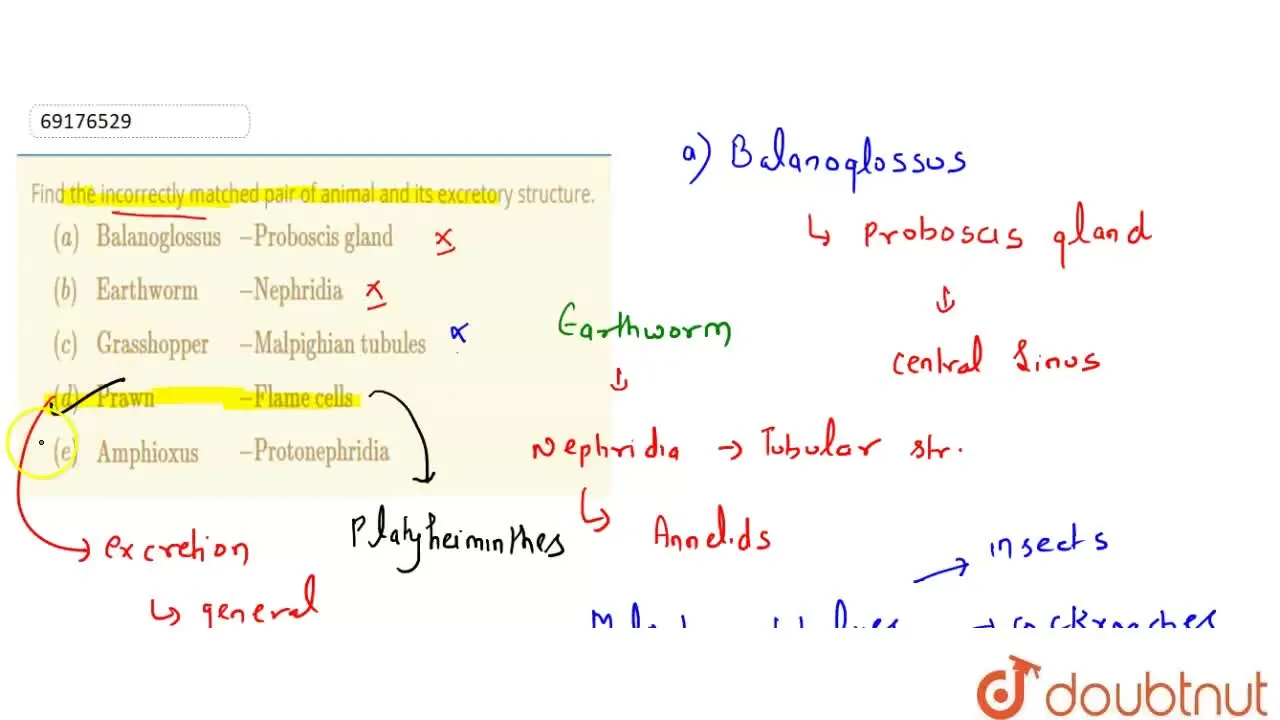 69176529
Find the incorrectly matched pair of animal and its excretory structure.
(a) Balanoglossus –Proboscis gland x
(b) Earthworm –Nephridia x
(c) Grasshopper –Malpighian tubules x
(d) Prawn –Flame cells
(e) Amphioxus –Protonephridia
a) Balanoglossus
Proboscis gland
central sinus
Earthworm
Nephridia → Tubular str.
Annelids
Platyheiminthes
excretion
general
insects
→ cockroaches
doubtnut